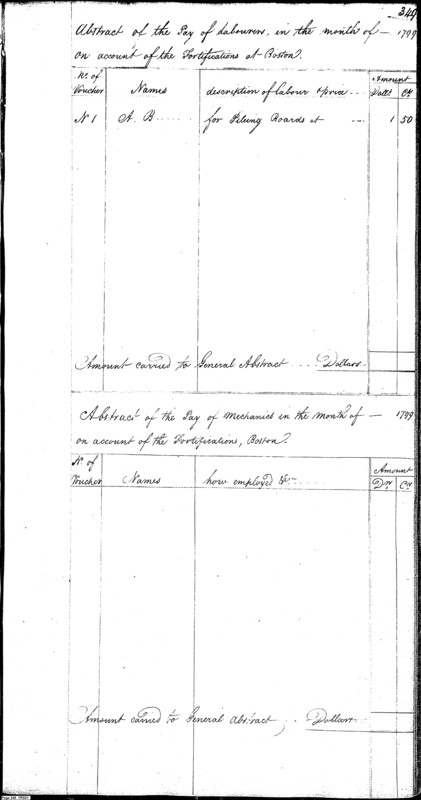 349
Abstract of the Pay of Labourers, in the month of — 1799
on account of the Fortifications at Boston.
No. of Voucher Names description of labour & price Amount Dolls. Cts
N 1 A. B for Pileing Boards at 1 50
Amount carried to General Abstract Dollars
Abstract of the Pay of Mechanics in the month of — 1799
on account of the Fortifications, Boston.
No. of Voucher Names how employed &c Amount Drs Cts
Amount carried to General Abstract, Dollars